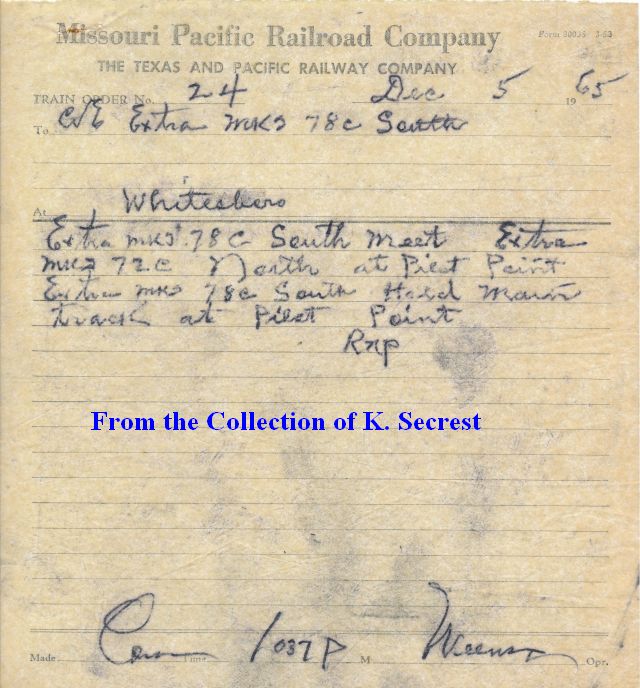 Missouri Pacific Railroad Company
Form 30035 3-53
THE TEXAS AND PACIFIC RAILWAY COMPANY
TRAIN ORDER No. 24 Dec 5 1965
To C&E Extra MKT 78C South
At Whitesboro
Extra MKT 78C South Meet Extra
MKT 72C North at Pilot Point
Extra MKT 78C South Hold Main
track at Pilot Point
RXP
From the Collection of K. Secrest
Made Com Time 1037 P M Opr.